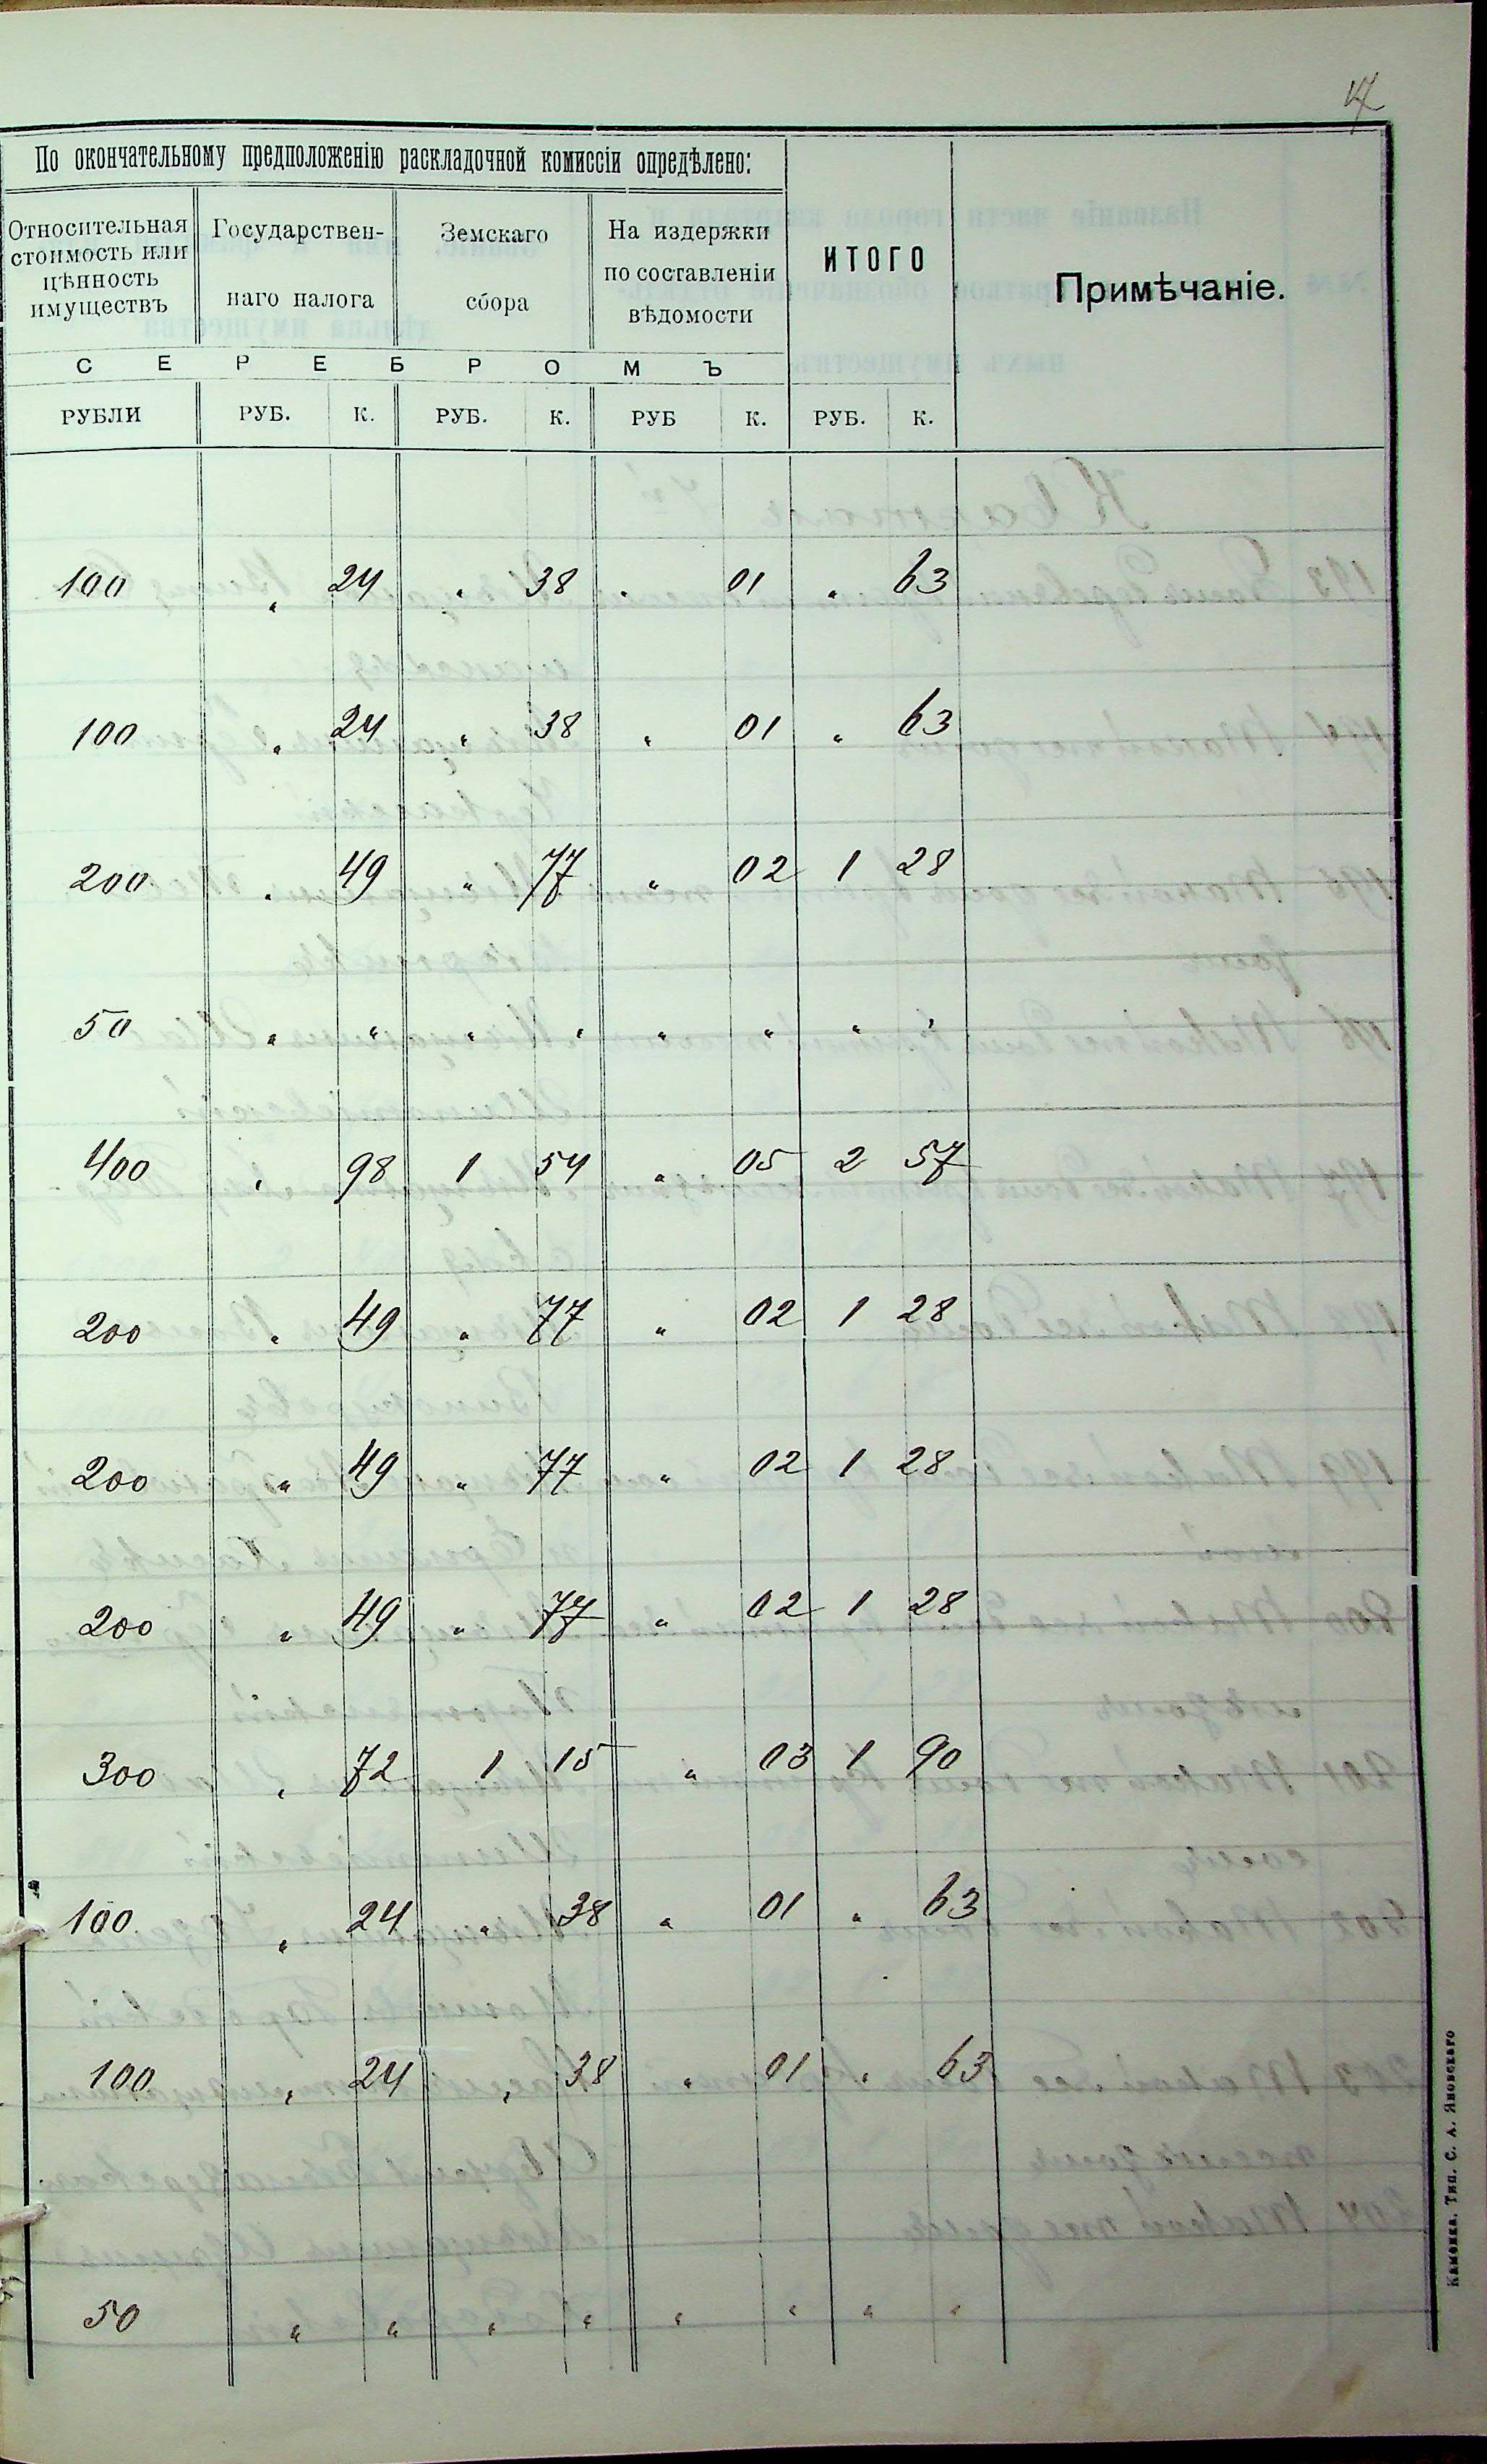 17
По окончательному предположенію раскладочной комиссіи опредѣлено:
Относительная стоимость или цѣнность имуществъ
Государственнаго налога
Земскаго сбора
На издержки по составленіи вѣдомости
ИТОГО
Примѣчаніе.
С Е Р Е Б Р О М Ъ
РУБЛИ РУБ. К. РУБ. К. РУБ К. РУБ. К.
100 „ 24 „ 38 „ 01 „ 63
100 „ 24 „ 38 „ 01 „ 63
200 „ 49 „ 77 „ 02 1 28
50 „ „ „ „ „ „ „ „
400 „ 98 1 54 „ 05 2 57
200 „ 49 „ 77 „ 02 1 28
200 „ 49 „ 77 „ 02 1 28
200 „ 49 „ 77 „ 02 1 28
300 „ 72 1 15 „ 03 1 90
100 „ 24 „ 38 „ 01 „ 63
100 „ 24 „ 38 „ 01 „ 63
50 „ „ „ „ „ „ „ „
Каменка. Тип. С. А. Яновскаго